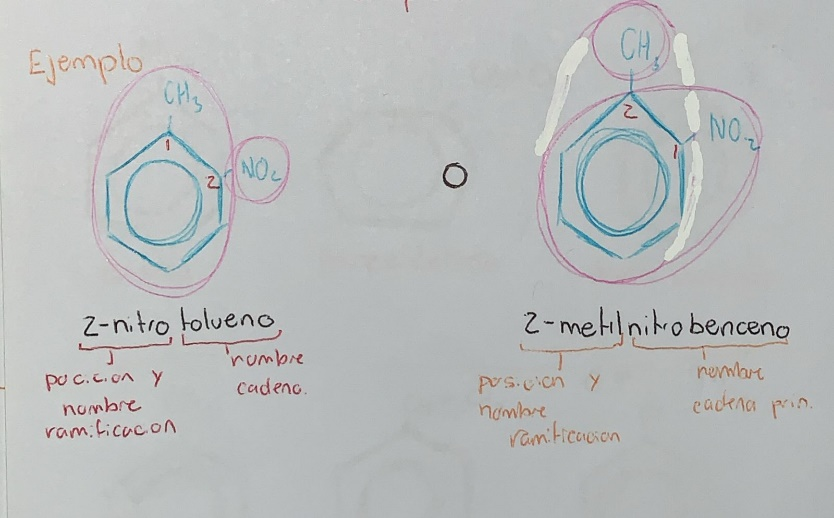 Ejemplo
CH3
1
2
NO2
O
CH3
2
1
NO2
2-nitrotolueno
posicion y
nombre
ramificacion
nombre
cadena.
2-metilnitrobenceno
posicion y
nombre
ramificacion
nombre
cadena prin.